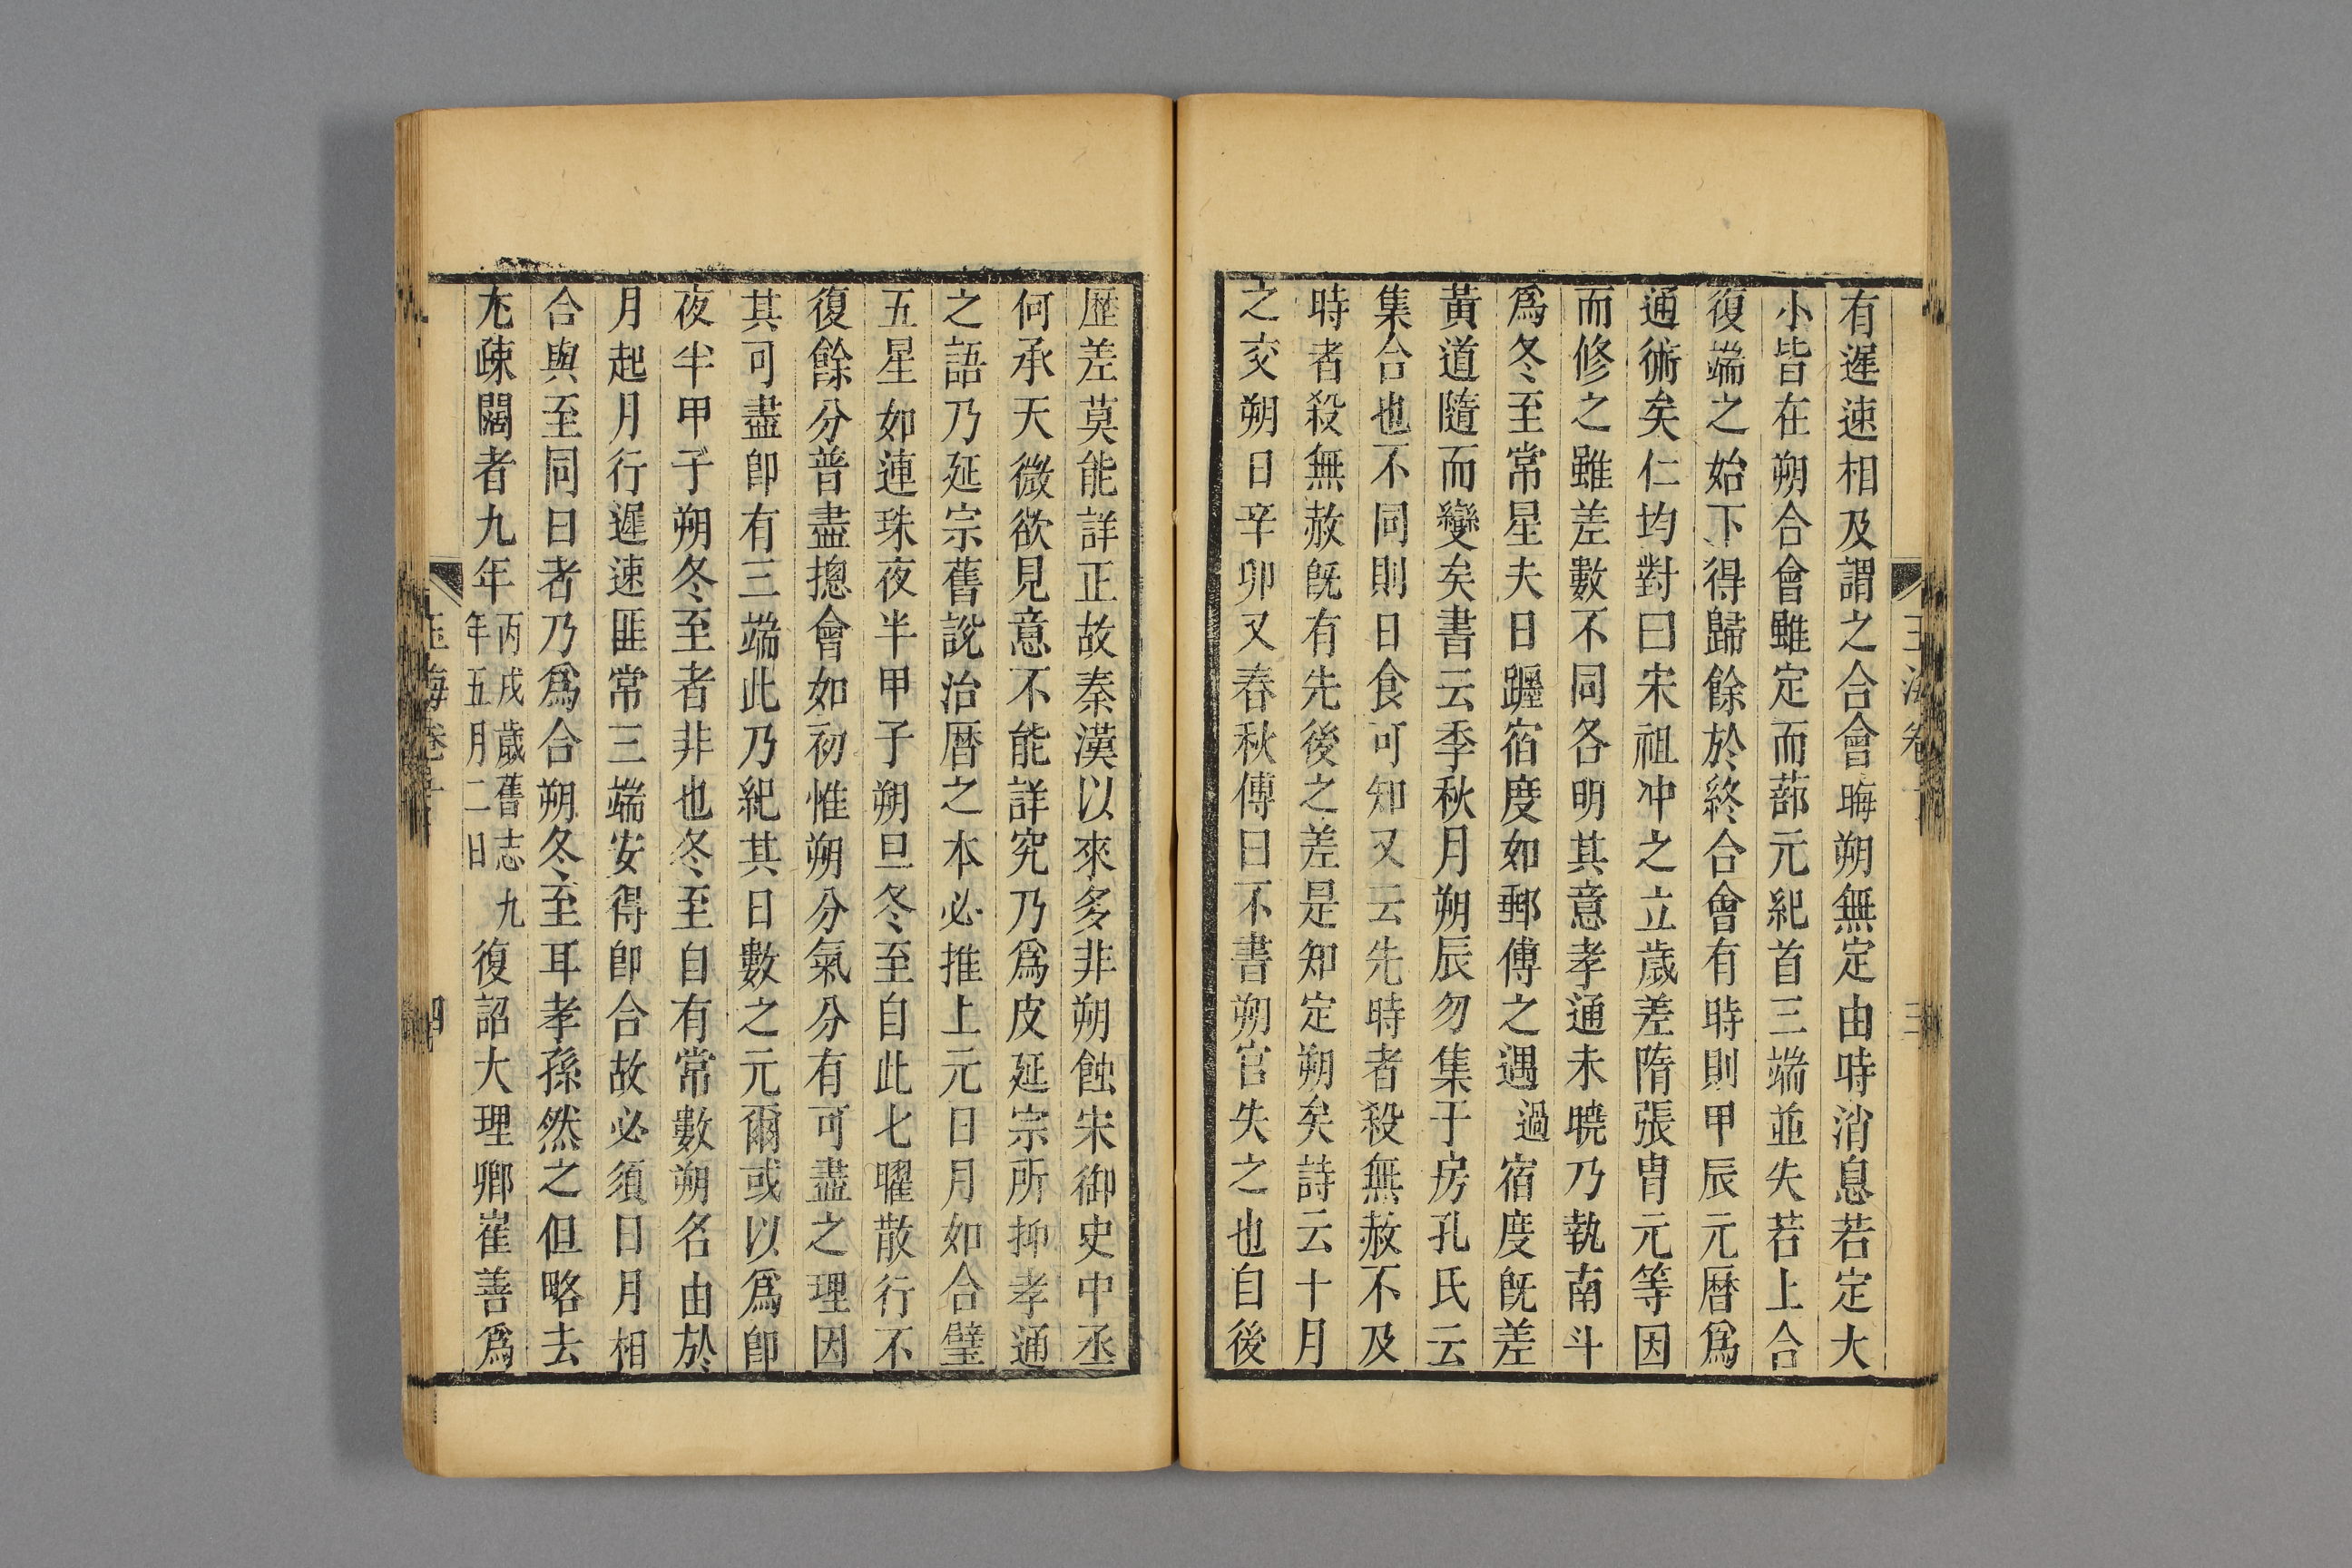 有遲速相及謂之合會晦朔無定由時消息若定大
小皆在朔合會雖定而蔀元紀首三端並失若上合
復端之始下得歸餘於終合會有時則甲辰元曆爲
通術矣仁均對曰宋祖冲之立歲差隋張胄元等因
而修之雖差數不同各明其意孝通未曉乃執南斗
爲冬至常星夫日躔宿度如郵傳之過宿度旣差
黃道隨而變矣書云季秋月朔辰勿集于房孔氏云
集合也不同則日食可知又云先時者殺無赦不及
時者殺無赦旣有先後之差是知定朔矣詩云十月
之交朔日辛卯又春秋傳曰不書朔官失之也自後
歴差莫能詳正故秦漢以來多非朔蝕宋御史中丞
何承天微欲見意不能詳究乃爲皮延宗所抑孝通
之語乃延宗舊說治曆之本必推上元日月如合璧
五星如連珠夜半甲子朔旦冬至自此七曜散行不
復餘分普盡摠會如初惟朔分氣分有可盡之理因
其可盡卽有三端此乃紀其日數之元爾或以爲卽
夜半甲子朔冬至者非也冬至自有常數朔名由於
月起月行遲速匪常三端安得卽合故必須日月相
合與至同日者乃爲合朔冬至耳孝孫然之但略去
尤疎闊者九年
丙戌歲舊志九
年五月二日
復詔大理卿崔善爲
玉海卷十
四
三